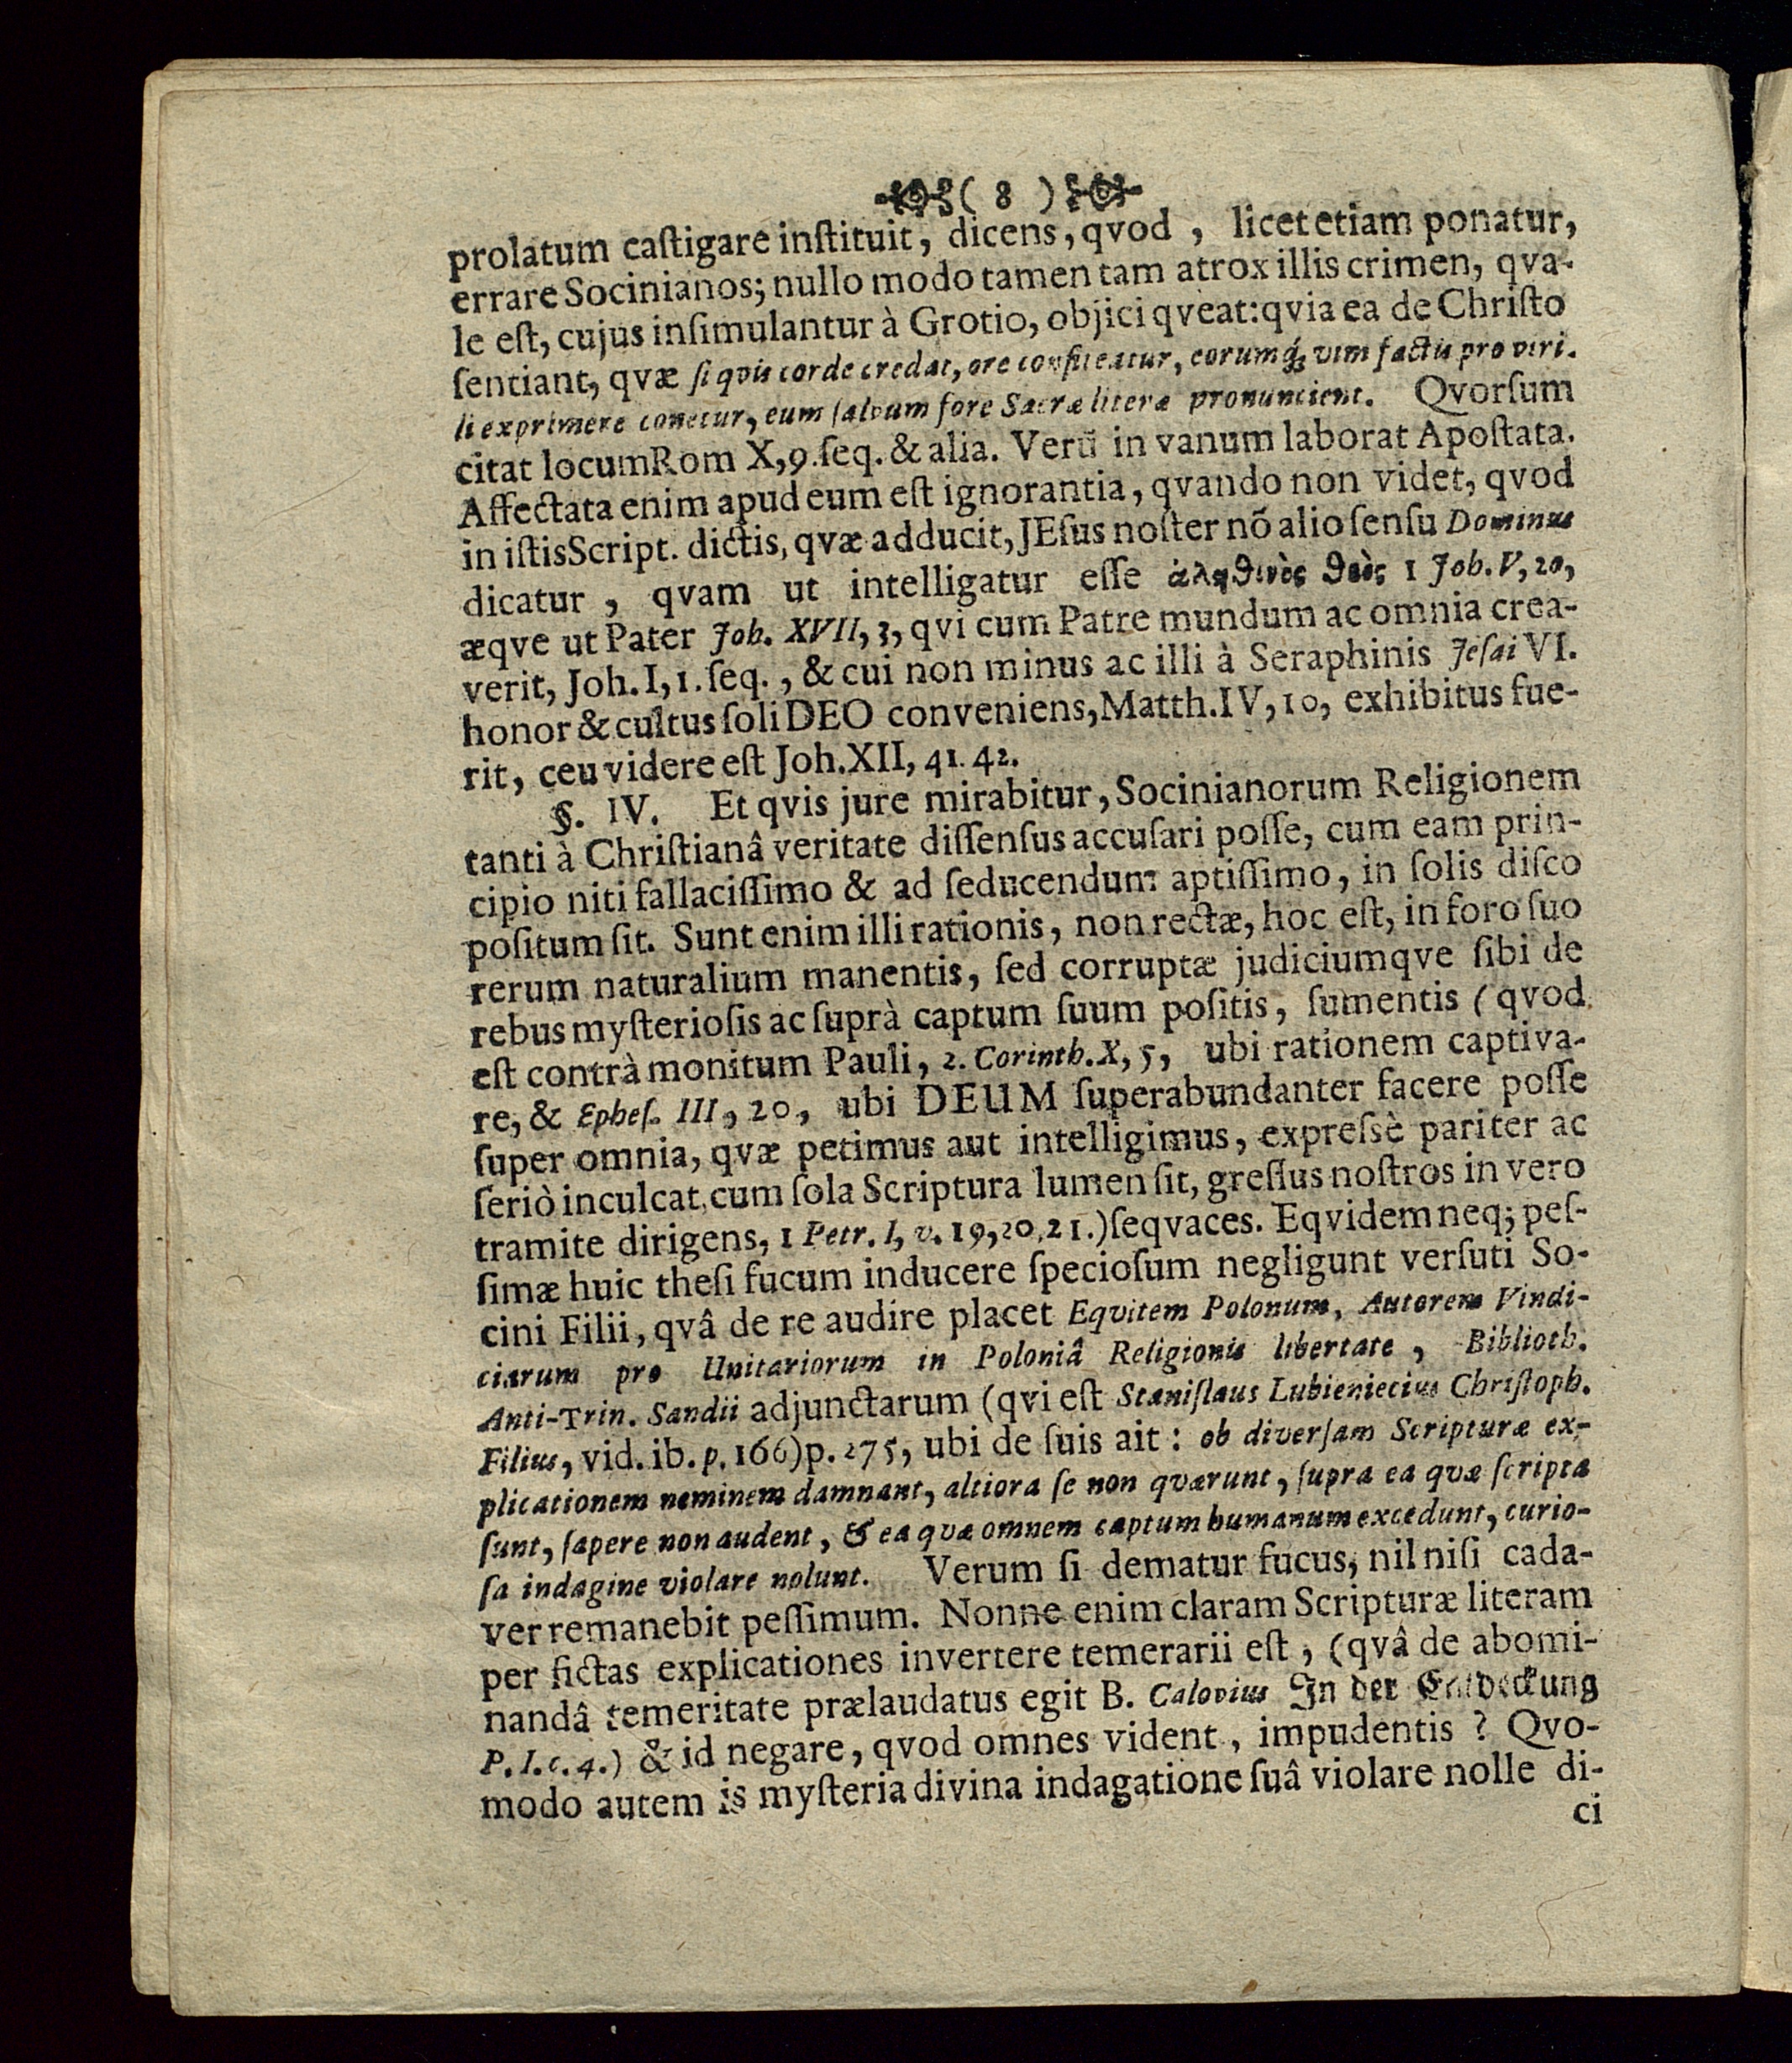 ( 8 )
prolatum caſtigare inſtituit, dicens, qvod, licet etiam ponatur,
errare Socinianos; nullo modo tamen tam atrox illis crimen, qva-
le eſt, cujus inſimulantur à Grotio, objici qveat: qvia ea de Chriſto
ſentiant, qvæ ſi qvis corde credat, ore confiteatur, eorumq́; vim factis pro viri-
li exprimere conetur, eum ſalvum fore Sacræ literæ pronuncient. Qvorſum
citat locum Rom X, 9. ſeq. & alia. Verū in vanum laborat Apoſtata.
Affectata enim apud eum eſt ignorantia, qvando non videt, qvod
in iſtis Script. dictis, qvæ adducit, JEſus noſter nõ alio ſenſu Dominus
dicatur, qvam ut intelligatur eſſe ἀληθινὸς θεὸς 1 Joh. V, 20,
æqve ut Pater Joh. XVII, 3, qvi cum Patre mundum ac omnia crea-
verit, Joh. I, 1. ſeq., & cui non minus ac illi à Seraphinis Jeſai VI.
honor & cultus ſoli DEO conveniens, Matth. IV, 10, exhibitus fue-
rit, ceu videre eſt Joh. XII, 41. 42.
§. IV. Et qvis jure mirabitur, Socinianorum Religionem
tanti à Chriſtianâ veritate diſſenſus accuſari poſſe, cum eam prin-
cipio niti fallaciſſimo & ad ſeducendum aptiſſimo, in ſolis diſco
poſitum ſit. Sunt enim illi rationis, non rectæ, hoc eſt, in foro ſuo
rerum naturalium manentis, ſed corruptæ judiciumqve ſibi de
rebus myſterioſis ac ſuprà captum ſuum poſitis, ſumentis (qvod
eſt contrà monitum Pauli, 2. Corinth. X, 5, ubi rationem captiva-
re, & Epheſ. III, 20, ubi DEUM ſuperabundanter facere poſſe
ſuper omnia, qvæ petimus aut intelligimus, expreſsè pariter ac
ſeriò inculcat, cum ſola Scriptura lumen ſit, greſſus noſtros in vero
tramite dirigens, 1 Petr. I, v. 19, 20, 21.) ſeqvaces. Eqvidem neq; peſ-
ſimæ huic theſi fucum inducere ſpecioſum negligunt verſuti So-
cini Filii, qvâ de re audire placet Eqvitem Polonum, Autorem Vindi-
ciarum pro Unitariorum in Poloniâ Religionis libertate, Biblioth.
Anti-Trin. Sandii adjunctarum (qvi eſt Staniſlaus Lubieniecius Chriſtoph.
Filius, vid. ib. p. 166) p. 275, ubi de ſuis ait: ob diverſam Scripturæ ex-
plicationem neminem damnant, altiora ſe non qværunt, ſupra ea qvæ ſcripta
ſunt, ſapere non audent, & ea qvæ omnem captum humanum excedunt, curio-
ſa indagine violare nolunt. Verum ſi dematur fucus, nil niſi cada-
ver remanebit peſſimum. Nonne enim claram Scripturæ literam
per fictas explicationes invertere temerarii eſt, (qvâ de abomi-
nandâ temeritate prælaudatus egit B. Calovius In der Entdeckung
P. I. c. 4.) & id negare, qvod omnes vident, impudentis? Qvo-
modo autem is myſteria divina indagatione ſuâ violare nolle di-
ci